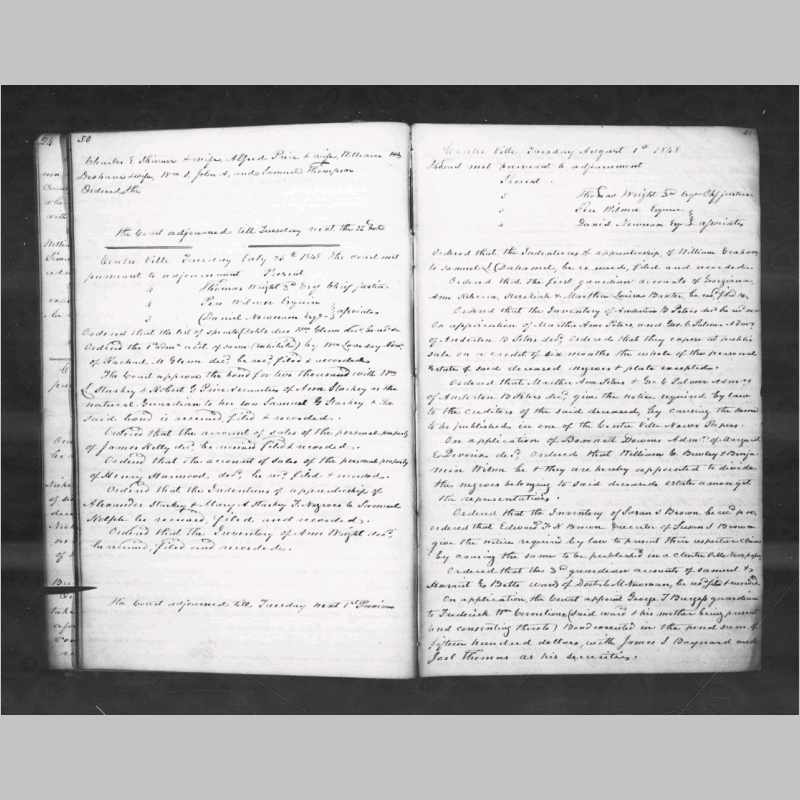 50
Charles E Skinner & wife, Alfred Price & wife, William
wife, Wm S. John A, and Samuel Thompson
Ordered the
the Court adjourned till Tuesday next the 25th
Centre Ville Tuesday July 25th 1848 the Court met
pursuant to adjournment Present
Thomas Wright 3d Esq Chief Justice
Pere Wilmer Esquire
Daniel Newnam Esqr associates
Ordered that the list of sperate debts due Wm Glenn
Ordered the 1st Adml acct. of some by Wm
of Rachael M Glenn decd. be recd. filed & recorded.
The Court approves the bond for two thousand with Wm
L Starkey & Robert G Price securities of Ann Starkey as the
natural Guardian to her son Samuel G Starkey & the
said bond is received filed & recorded.
Ordered that the account of sales of the personal property
of James Kelly decd. be received filed & recorded.
Ordered that the account of Sales of the personal property
of Henry Harwood, decd. be recd. filed & recorded.
Ordered that the Indentures of apprenticeship of
Alexander Starkey & Mary A Starkey F. Negroes to Samuel
Rolph be received, filed, and recorded.
Ordered that the Inventory of Ann Wright decd.
be received, filed and recorded.
the Court adjourned till Tuesday next 1st Proximo
Centre Ville, Tuesday August 1st 1848
Court met pursuant to adjournment
Present
Thomas Wright 3d Esqr Chf justice
Pere Wilmer Esquire
Daniel Newnam Esqr associates
Ordered that the Indentures of apprenticeship of William
to Samuel be received, filed and recorded.
Ordered that the first guardian accounts of Georgiana,
Ann Rebecca, & Martha Louisa Baxter be recd. filed &c.
Ordered that the Inventory of Anderton B Peters decd. be recd.
On application of Martha Ann Peters, and Geo. C Palmer Admrs
of Anderton B Peters decd. Ordered that they expose at public
sale on a credit of six months the whole of the personal
Estate of said deceased negroes & plate excepted.
Ordered that Martha Ann Peters & Geo C Palmer Admrs
of Anderton B Peters decd. give the notice required by law
to the creditors of the said deceased, by causing the same
to be published in one of the Centre Ville News Papers.
On application of Admr. of
decd. Ordered that William C. & Benja-
min Wilson be & they are hereby appointed to divide
the negroes belonging to said deceaseds estate amongst
the representatives.
Ordered that the Inventory of Susan S Brown be recd.
ordered that Edward F. N Brown Executor of Susan S Brown
give the notice required by law to present their respective claims
by causing the same to be published in a Centre Ville Newspaper
Ordered that the 3rd guardian accounts of Samuel &
Harriet E Betts wards of Newnam, be recd. filed & recorded.
On application, the Court appoint George T Burgess guardian
to Frederick Wm (said ward & his mother being present
and consenting thereto) Bond executed in the penal sum of
fifteen hundred dollars, with James S Baynard and
Joel Thomas as his securities.